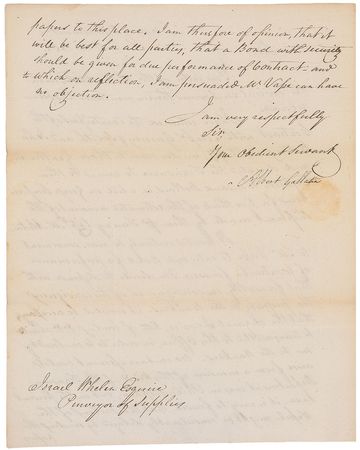 papers to this place. I am therefore of opinion, that it
will be best for all parties, that a Bond with security
should be given for due performance of Contract and
to which on reflection, I am persuaded Mr Vape can have
no objection.
I am very respectfully
Sir,
Your Obedient Servant
Albert Gallatin
Israel Whelen Esquire
Purveyor of Supplies